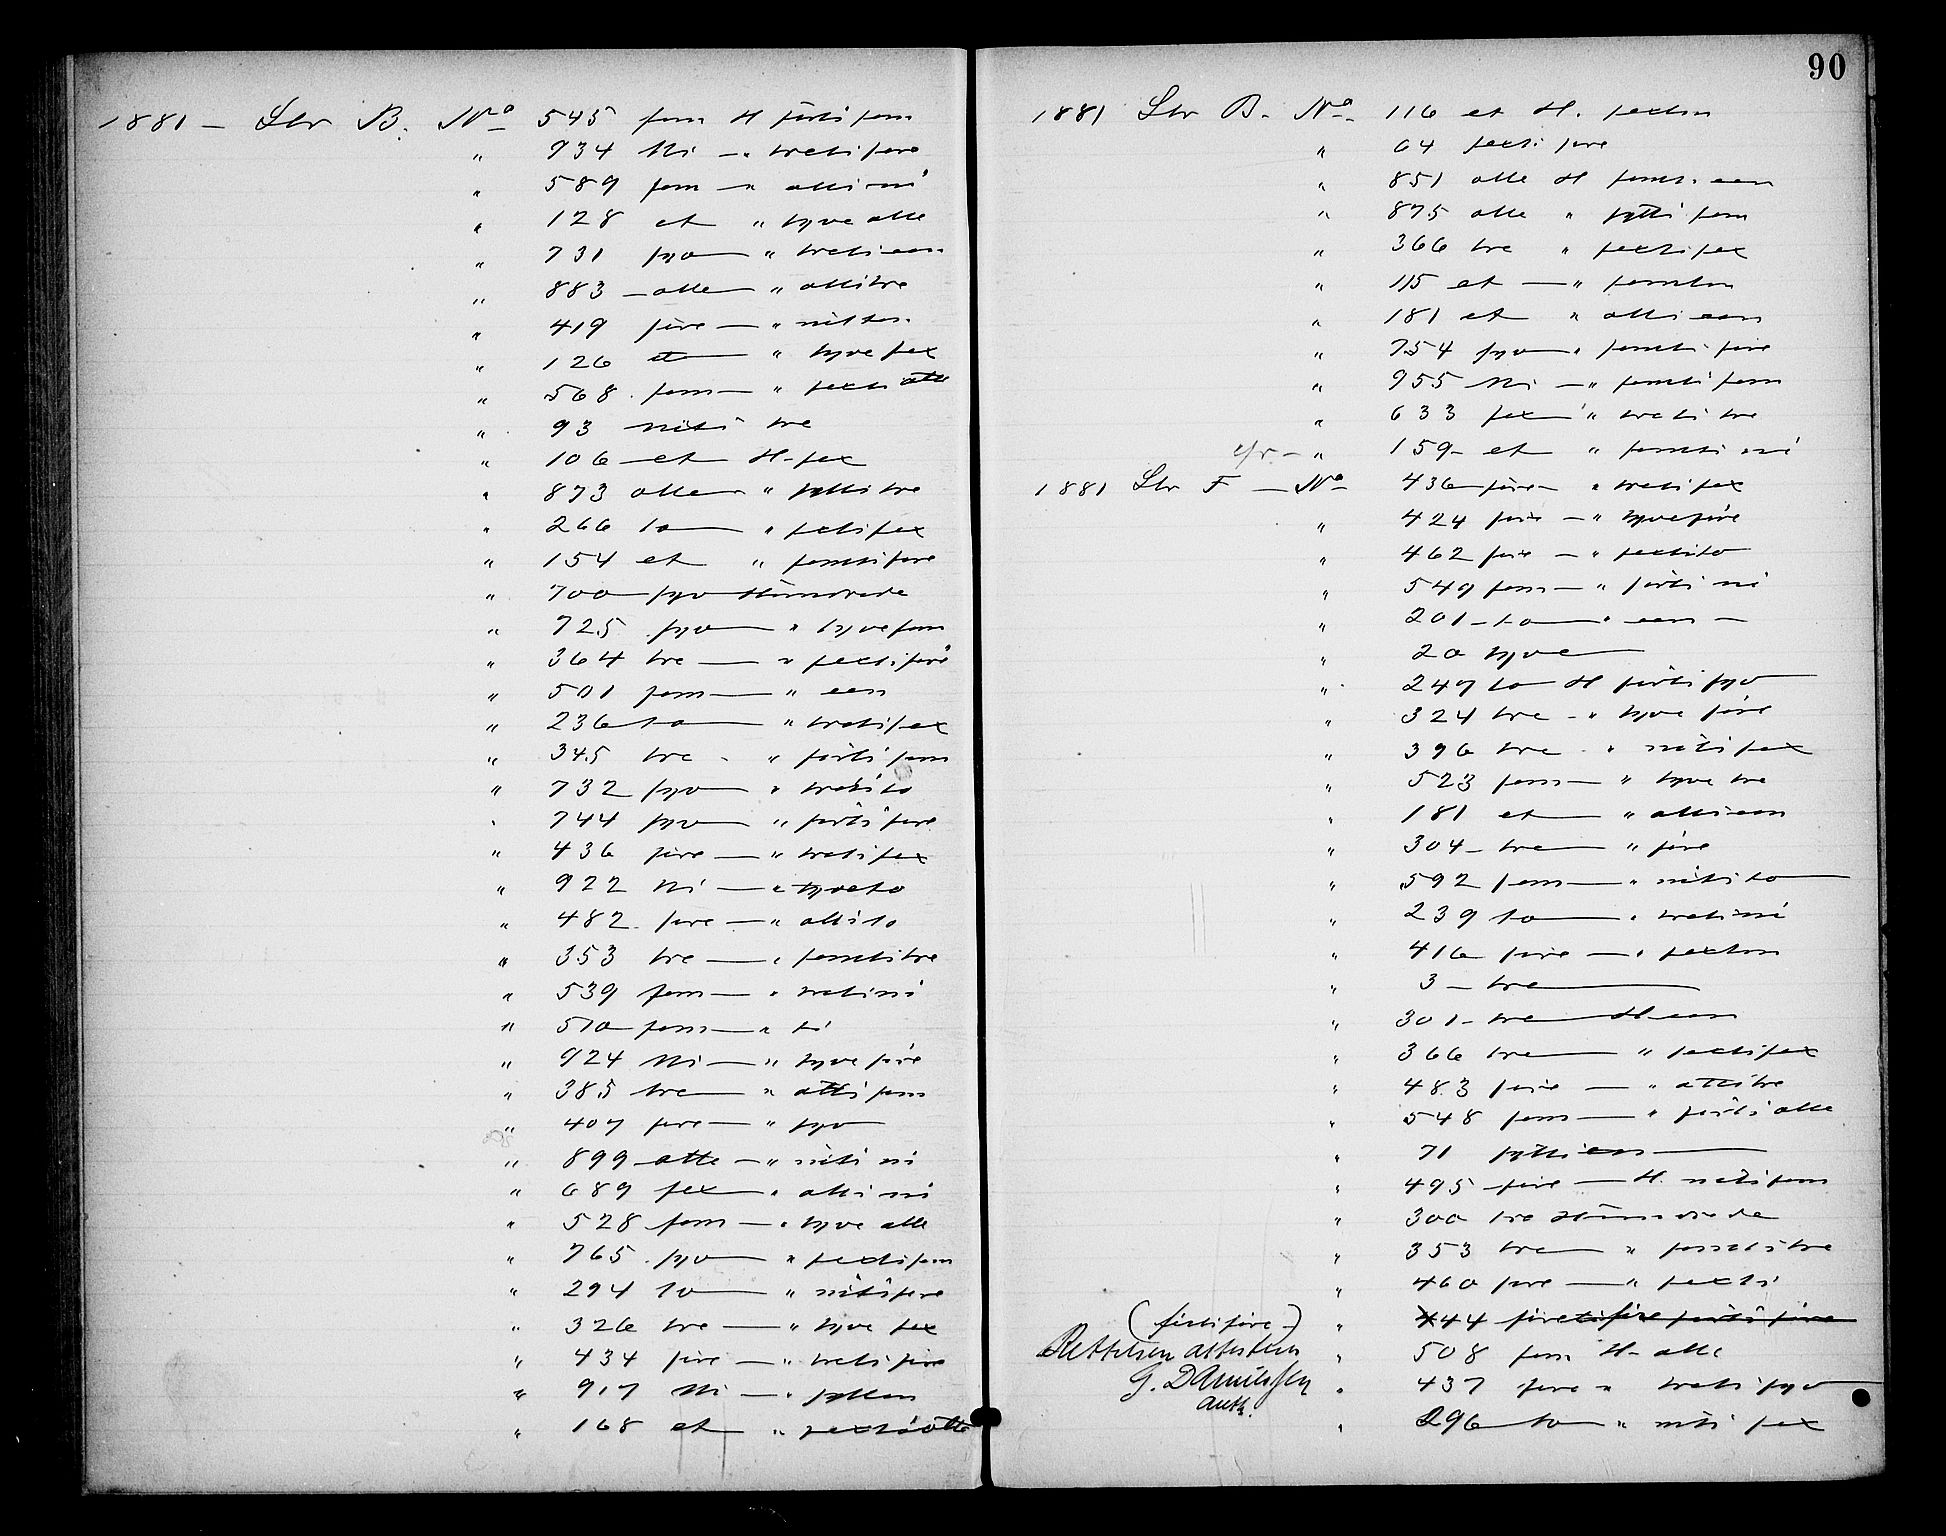 1881 – Ltr B. No 545 fem H förti fem
" 934 Ni – " treti fire
" 589 fem – " otti ni
" 128 et " tyve otte
" 731 syv – " treti een
" 883 – otte – " otti tre
" 419 fire – " nitten
" 126 et – " tyve sex
" 568 fem – " sexti otte
" 93 niti tre
" 106 – et H – sex
" 873 otte – " sytti tre
" 266 to – " sexti sex
" 154 et " femti fire
" 700 – syv Hundrede
" 725 syv – " tyve fem
" 364 tre – " sexti fire
" 501 fem – " een
" 236 to – " treti sex
" 345 tre – " förti fem
" 732 syv " treti to
" 744 syv – " förti fire
" 436 fire – " treti sex
" 922 Ni – " tyve to
" 482 fire – " otti to
" 353 tre – " femti tre
" 539 fem – " treti ni
" 510 – fem – " ti
" 924 Ni – " tyve fire
" 385 tre – " otti fem
" 407 fire – " syv
" 899 – otte – " niti ni
" 689 sex – " otti ni
" 528 fem – " tyve otte
" 765 syv – " sexti fem
" 294 to – " niti fire
" 326 tre – " tyve sex
" 434 fire – " treti fire
" 917 Ni – " sytten
" 168 et – " sexti otte
90
1881 Ltr B. No 116 et H. sexten
" 64 sexti fire
" 851 otte H femti een
" 875 otte " sytti fem
" 366 tre " sexti sex
" 115 et – " femten
" 181 et " otti een
" 754 syv – " femti fire
" 955 Ni – " femti fem
" 633 sex " treti tre
" 159 – et " femti ni
1881 Ltr F – No 436 – fire – " treti sex
" 424 fire – " tyve fire
" 462 fire – " sexti to
" 549 fem – " förti ni
" 201 – to – " een –
" 20 tyve –
" 247 to H förti syv –
" 324 tre – " tyve fire
" 396 tre – " niti sex
" 523 fem – " tyve tre
" 181 et – " otti een
" 304 – tre – " fire
" 592 fem – " niti to –
" 239 to – " treti ni
" 416 fire – " sexten
" 3 – tre –
" 301 – tre – H een
" 366 tre – " sexti sex
" 483 fire – " otti tre
" 548 fem – " förti otte
" 71 sytti een –
" 495 – fire – H. niti fem
" 300 tre Hundrede
" 353 tre – " femti tre
" 460 fire – " sexti
(förti fire –) " 444 fire ti fire förti fire
Rettelsen attesteres " 508 fem H – otte
G. Danielsen " 437 fire " treti syv –
auth.
" 296 to – " niti sex